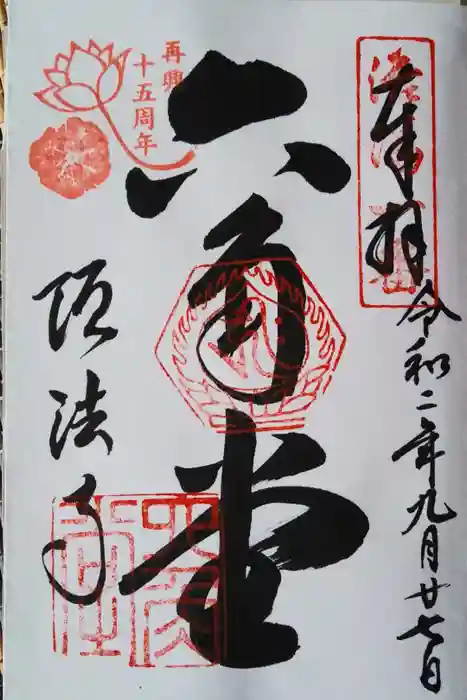 奉拝
令和二年九月廿七日
六角堂
再興
十五周年
頂法寺